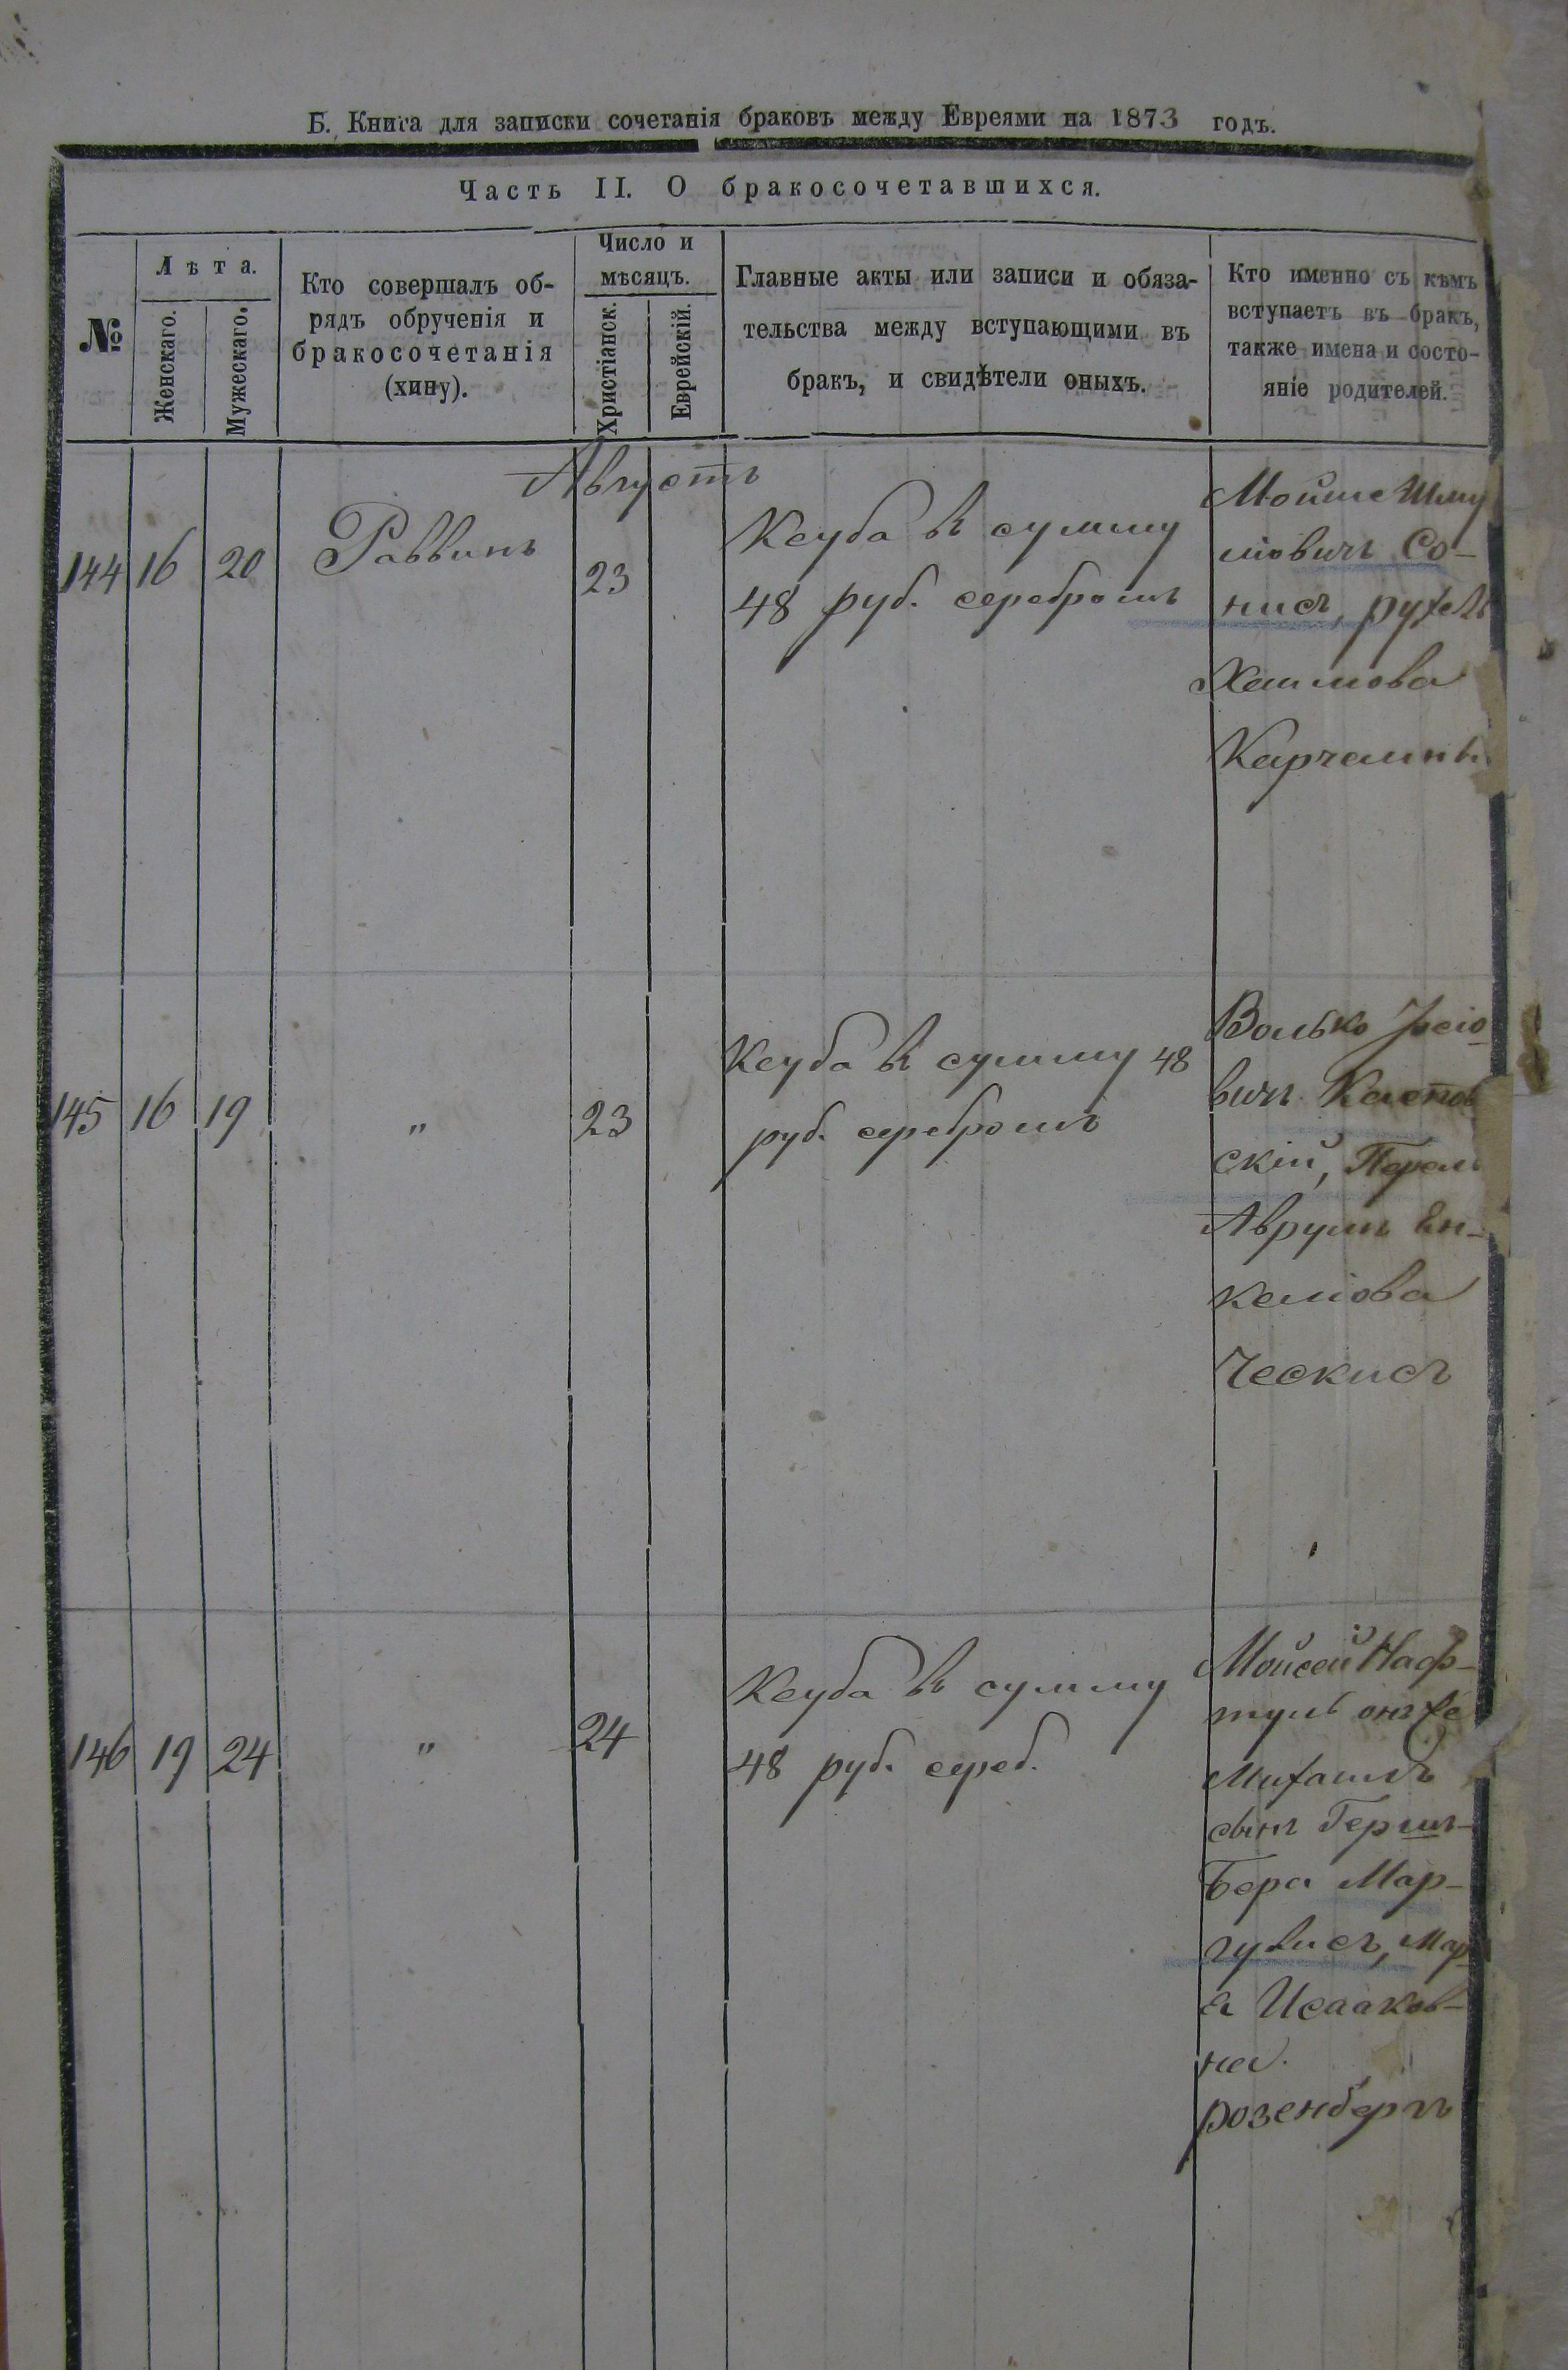 Б. Книга для записки сочетанія браковъ между Евреями на 1873 годъ.
Часть II. О бракосочетавшихся.
№
Лѣта.
Женскаго.
Мужескаго.
Кто совершалъ об-
рядъ обрученія и
бракосочетанія
(хипу).
Число и
мѣсяцъ.
Христіанск.
Еврейскій.
Главные акты или записи и обяза-
тельства между вступающими въ
бракъ, и свидѣтели оныхъ.
Кто именно съ кѣмъ
вступаетъ въ бракъ,
также имена и состо-
яніе родителей.
Августъ
144 16 20 Раввинъ 23
Кеуба въ сумму
48 руб. серебромъ
Мойше Шму
ліовичъ Со-
нисъ, Рухель
Хаимова
145 16 19 " 23
Кеуба въ сумму 48
руб. серебромъ
Волько
вичъ
скій, Перель
Аврумъ Ен-
келіова
Ческисъ
146 19 24 " 24
Кеуба въ сумму
48 руб. сереб.
Мойсей Наф-
туль онъ же
Михаилъ
сынъ Гершъ-
Бера Мар-
гулисъ, Мар
Исааков-
на
Розенбергъ